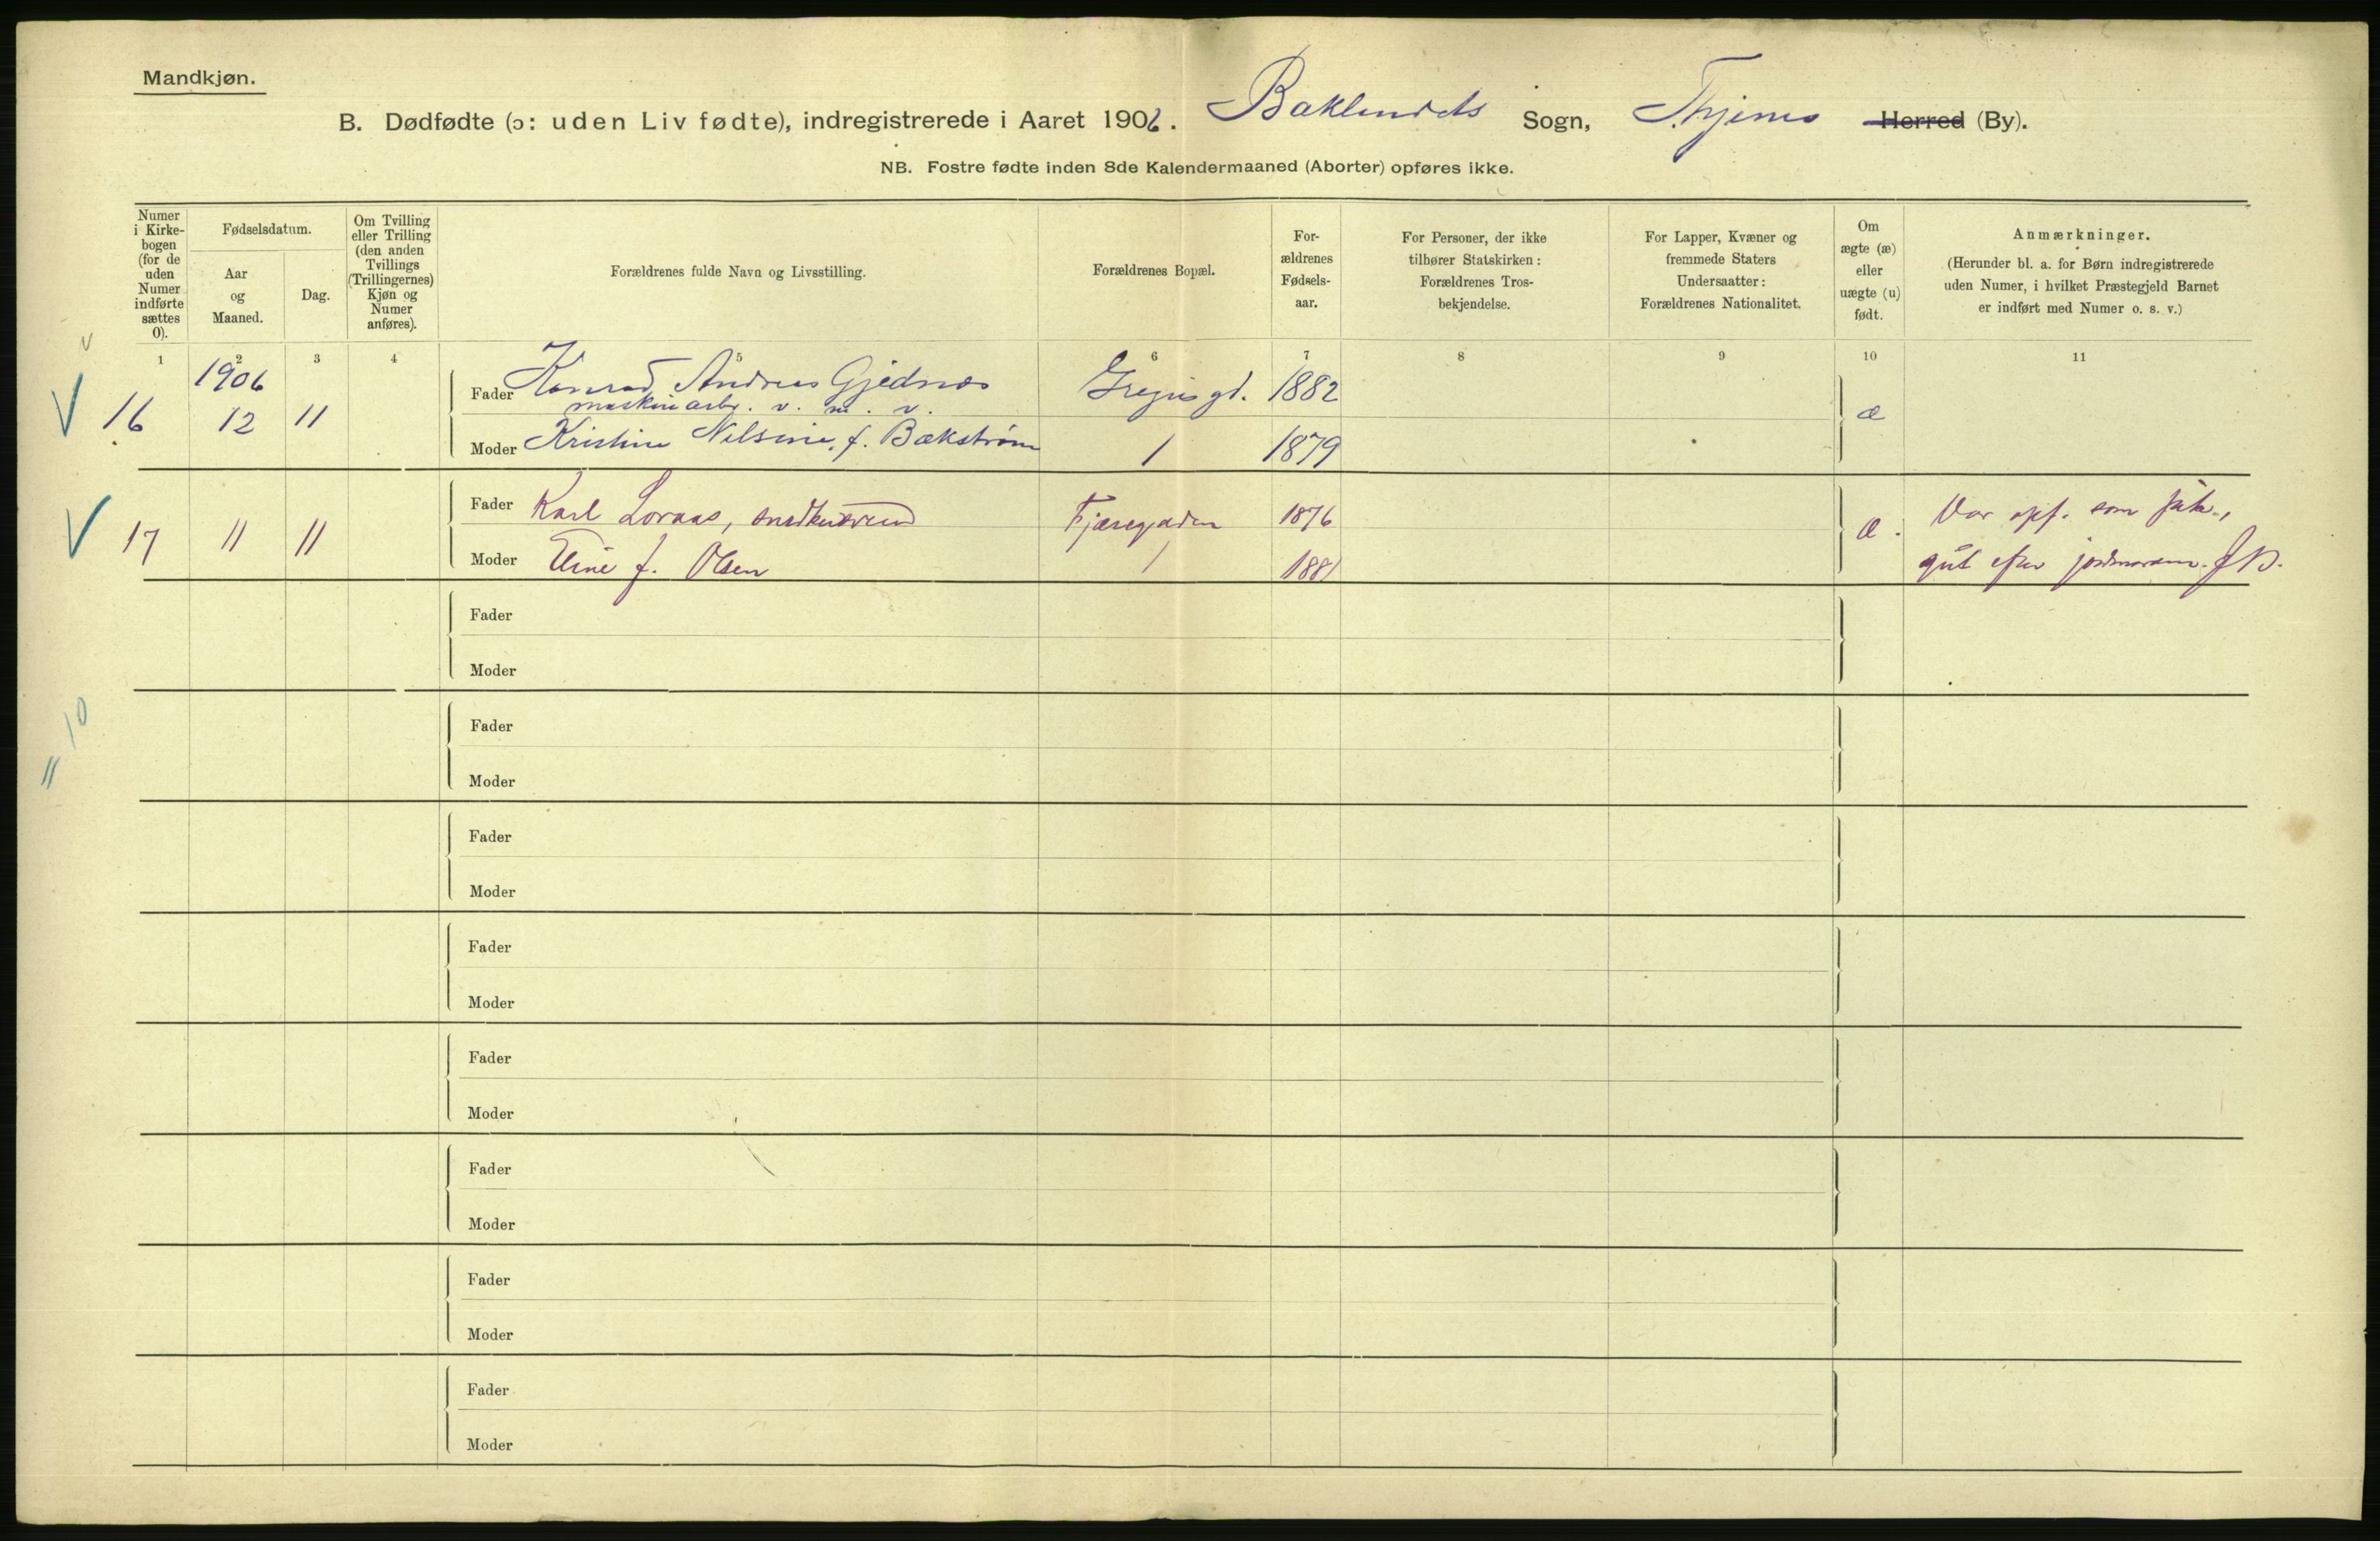 Mandkjøn.
B. Dødfødte (ɔ: uden Liv fødte), indregistrerede i Aaret 1906. Baklandets Sogn, Thjems Herred (By).
NB. Fostre fødte inden 8de Kalendermaaned (Aborter) opføres ikke.
Numer i Kirke-bogen (for de uden Numer indførte sættes 0).
Fødselsdatum.
Aar og Maaned.
Dag.
Om Tvilling eller Trilling (den anden Tvillings (Trillingernes) Kjøn og Numer anføres).
Forældrenes fulde Navn og Livsstilling.
Forældrenes Bopæl.
For-ældrenes Fødsels-aar.
For Personer, der ikke tilhører Statskirken: Forældrenes Tros-bekjendelse.
For Lapper, Kvæner og fremmede Staters Undersaatter: Forældrenes Nationalitet.
Om ægte (æ) eller uægte (u) født.
Anmærkninger.
(Herunder bl. a. for Børn indregistrerede uden Numer, i hvilket Præstegjeld Barnet er indført med Numer o. s. v.)
1 2 3 4 5 6 7 8 9 10 11
1906
V 16 12 11 Fader Konrad Andreas Gjednes 1882 æ
maskinarb. v. m. v.
Moder Kristine Nilsine, f. Bækstrøm 1879
V 17 11 11 Fader Karl Loraas, snedkersvend Fjæregaden 1876 æ. Var opf. som
Moder f. Olsen 1881 gut efter jordmoderen.
Fader
Moder
10
Fader
11
Moder
Fader
Moder
Fader
Moder
Fader
Moder
Fader
Moder
Fader
Moder
Fader
Moder